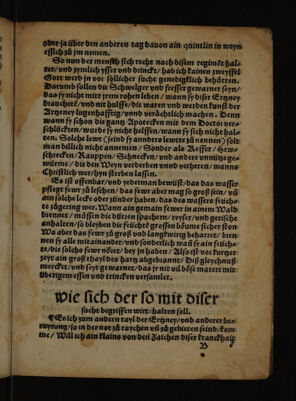 oder ja über den anderen tag dauon ain quintlin in weyn
essich zů jm nemen.
So nun der mensch sich recht nach disem regimēt hal-
tet/ vnd zymlich ysset vnd drinckt/ hab ich kainen zweyffel
Gott werd jn vor sollicher sucht genedigklich behütten.
Darumb sollen die Schwelger vnd fresser gewarnet seyn/
das sy nit mit jrem rohen leben/ wann sy diser Ertzney
brauchetē/ vnd nit hulffe/ die waren vnd werden kunst der
Artzeney lugenhafftig/ vnnd verächtlich machen. Denn
wann sy schon die gantz Apotecken mit dem Doctor ver-
schlückten/ wurde sy nicht helffen/ wann sy sich nicht hal-
ten. Solche leüt (seind sy annderst leüt zů nennen) solt
man billich nicht annemen/ Sonder als Keffer/ Hew-
schrecken/ Rauppen/ Schnecken/ vnd andere vnnütze ge-
würme/ die den Weyn verderben vnnd verheren/ wanns
Christlich wer/ hyn sterben lassen.
Es ist offenbar/ vnd yederman bewüst/ das das wasser
pflegt fewr zů leschen/ das fewr aber mag so groß sein/ vñ
ain solche lecke oder zierde haben/ das des wassers feüch-
te zů gering wer. Wann ain gemain fewr in ainem Wald
brennet/ müssen die dürren spachern/ reyser/ vnd gersche
anhalten/ so bleyben die feüchte grossen böume sicher ston
Wa aber das fewr zů groß vnd langkwirig beharret/ bren-
nen sy alle mit ainander/ vnd sonderlich wañ sy ain feüch-
te/ die solchs fewr nöret/ bey jn haben/ Also ist vor kurtzer
zeyt ain groß thayl des hartz abgebrannt/ Diß gleychnuß
mercket/ vnd seyt gewarnet/ das jr nit vil böse materi mit
übrigem essen vnd trincken versamlet.
wie sich der so mit diser
sucht begriffen wirt/ halten soll.
Es ist zům andern tayl der Ertzney/ vnd anderer be-
/ ja in der not zů raychen vñ zů gebieten seind/ kom-
me/ Will ich ain klains von den Zaichen diser kranckhait
B